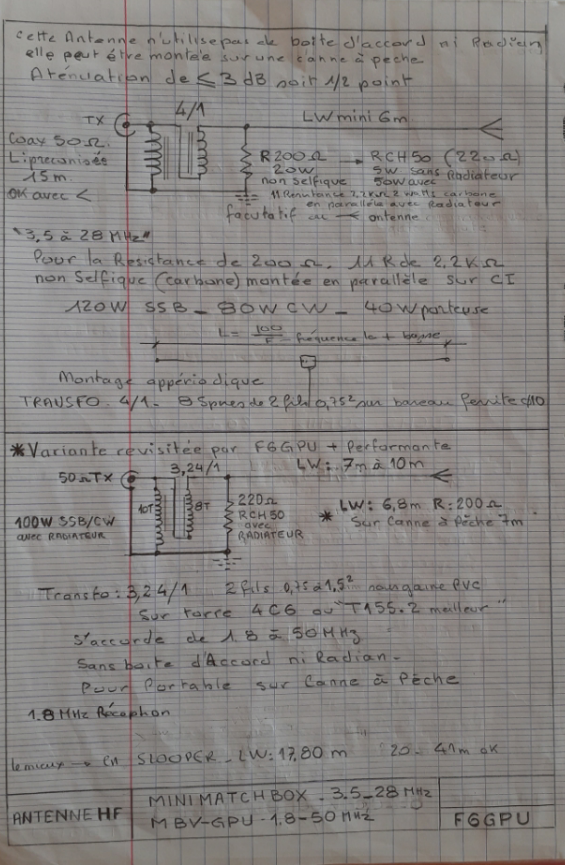 Cette Antenne n'utilise pas de boîte d'accord ni Radian,
elle peut être montée sur une canne à peche
Aténuation de ≤ 3 dB soit 1/2 point
4/1
TX
LW mini 6m
Coax 50Ω
L: preconisée
15 m
OK avec <
R 200Ω → RCH50 (220Ω)
20W
non selfique
5W sans Radiateur
50W avec
11 Résistance 2,2K 2 watts carbone
en parallèle avec Radiateur
facultatif antenne
"3,5 à 28 MHz"
Pour la Resistance de 200 Ω. 11 R de 2,2 KΩ
non selfique (carbone) montée en parallèle sur CI
120W SSB - 80W CW - 40W porteuse
L = 100/F fréquence la + basse
Montage appériodique
TRANSFO. 4/1. 8 Spires de 2 fils 0,75² sur barreau ferrite d10
*Variante revisitée par F6GPU + Performante
50Ω TX
3,24/1
LW: 7m à 10m
10T
8T
220Ω
RCH50
avec
RADIATEUR
100W SSB/CW
avec RADIATEUR
* LW: 6,8m R: 200Ω
Sur Canne à Pêche 7m
Transfo: 3,24/1 2 fils 0,75 à 1,5² PVC
Sur torre 4C6 ou "T155.2 meilleur"
S'accorde de 1 8 à 50 MHz
Sans boite d'Accord ni Radian -
Pour Portable sur Canne à Pêche
1.8 MHz Réception
le mieux → en SLOOPER - LW: 17,80 m 20 - 41m ok
ANTENNE HF
MINI MATCH BOX . 3.5-28 MHz
MBV-GPU - 1.8-50 MHz
F6GPU